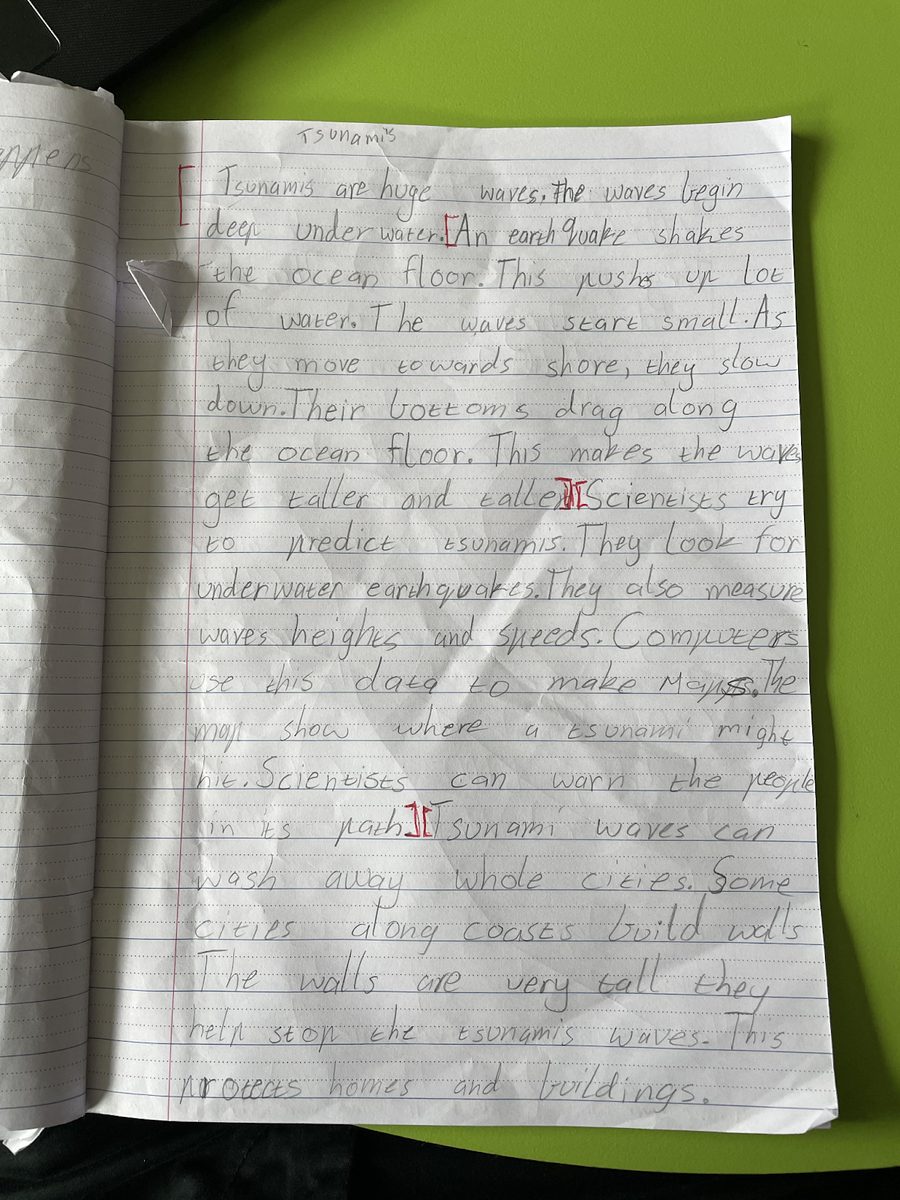 Tsunamis
Tsunamis are huge waves. The waves begin
deep under water. [An earthquake shakes
the ocean floor. This pushs up lot
of water. The waves start small. As
they move towards shore, they slow
down. Their bottoms drag along
the ocean floor. This makes the waves
get taller and taller][Scientists try
to predict tsunamis. They look for
underwater earthquakes. They also measure
waves heights and speeds. Computers
use this data to make Maps. The
map show where a tsunami might
hit. Scientists can warn the people
in its path][Tsunami waves can
wash away whole cities. Some
cities along coasts build walls
The walls are very tall they
help stop the tsunamis waves. This
protects homes and buildings.